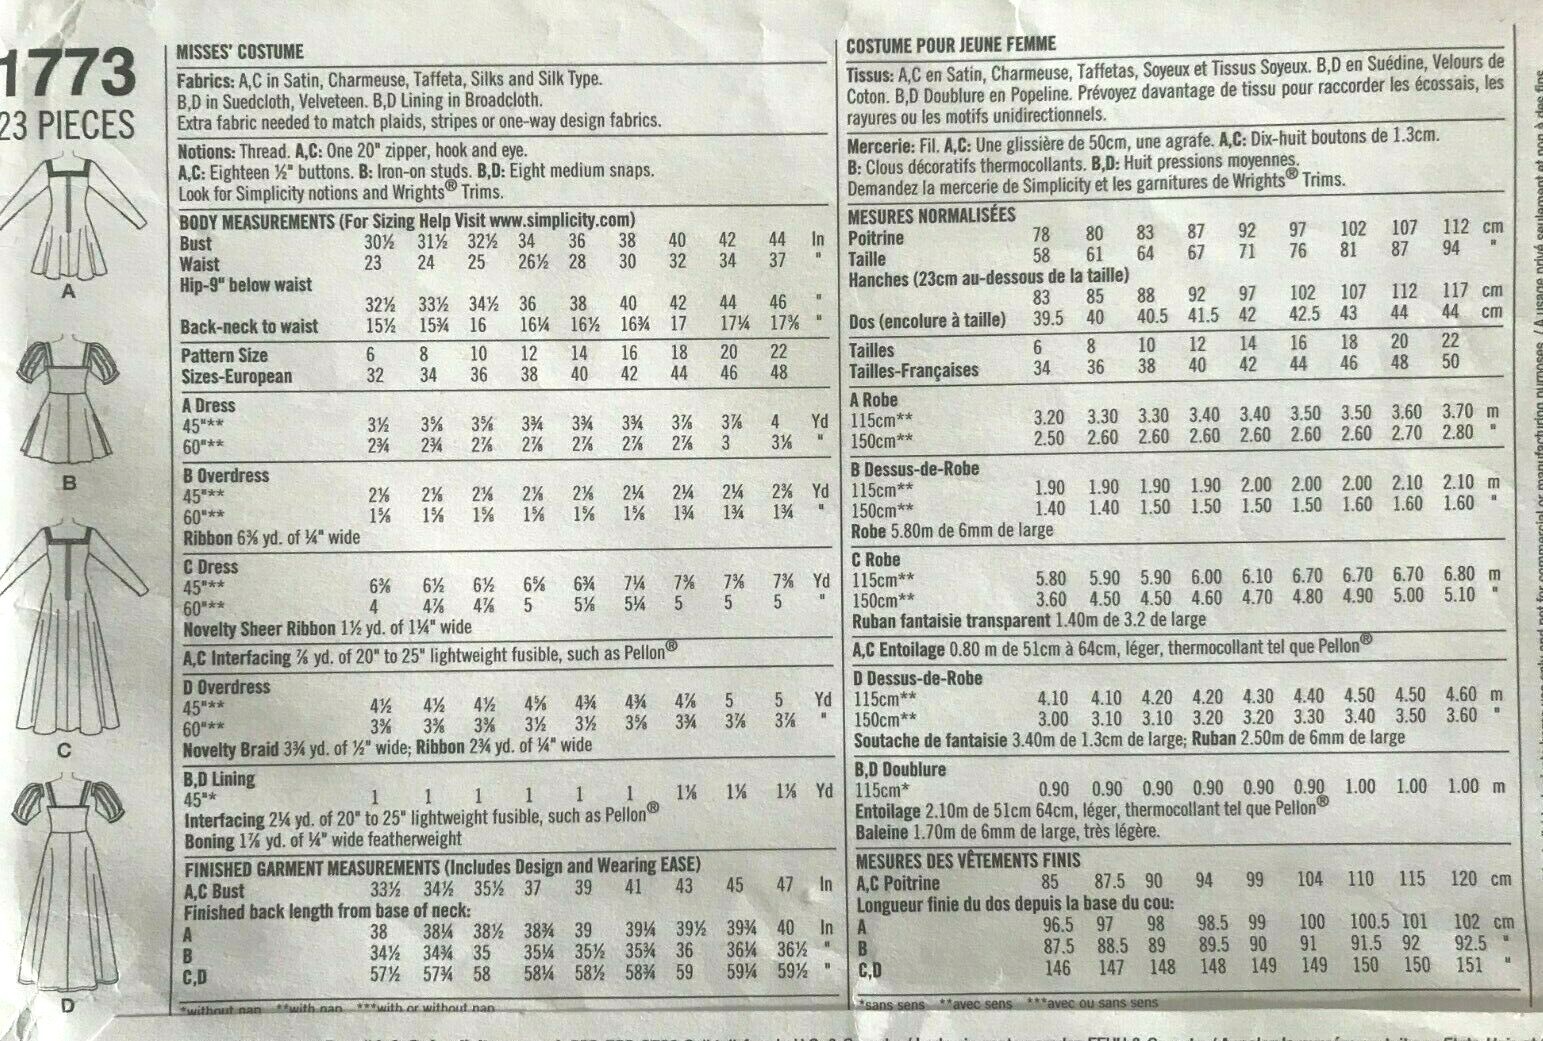 1773
23 PIECES
A
B
C
D
MISSES' COSTUME
Fabrics: A,C in Satin, Charmeuse, Taffeta, Silks and Silk Type.
B,D in Suedcloth, Velveteen. B,D Lining in Broadcloth.
Extra fabric needed to match plaids, stripes or one-way design fabrics.
Notions: Thread. A,C: One 20" zipper, hook and eye.
A,C: Eighteen ½" buttons. B: Iron-on studs. B,D: Eight medium snaps.
Look for Simplicity notions and Wrights® Trims.
BODY MEASUREMENTS (For Sizing Help Visit www.simplicity.com)
Bust 30½ 31½ 32½ 34 36 38 40 42 44 In
Waist 23 24 25 26½ 28 30 32 34 37 "
Hip-9" below waist
32½ 33½ 34½ 36 38 40 42 44 46 "
Back-neck to waist 15½ 15¾ 16 16¼ 16½ 16¾ 17 17¼ 17⅜ "
Pattern Size 6 8 10 12 14 16 18 20 22
Sizes-European 32 34 36 38 40 42 44 46 48
A Dress
45"** 3½ 3⅝ 3⅝ 3¾ 3¾ 3¾ 3⅞ 3⅞ 4 Yd
60"** 2¾ 2¾ 2⅞ 2⅞ 2⅞ 2⅞ 2⅞ 3 3⅛ "
B Overdress
45"** 2⅛ 2⅛ 2⅛ 2⅛ 2⅛ 2¼ 2¼ 2¼ 2⅜ Yd
60"** 1⅝ 1⅝ 1⅝ 1⅝ 1⅝ 1⅝ 1¾ 1¾ 1¾ "
Ribbon 6⅜ yd. of ¼" wide
C Dress
45"** 6⅜ 6½ 6½ 6⅝ 6¾ 7¼ 7⅜ 7⅜ 7⅜ Yd
60"** 4 4⅞ 4⅞ 5 5⅛ 5¼ 5 5 5 "
Novelty Sheer Ribbon 1½ yd. of 1¼" wide
A,C Interfacing ⅞ yd. of 20" to 25" lightweight fusible, such as Pellon®
D Overdress
45"** 4½ 4½ 4½ 4⅝ 4¾ 4¾ 4⅞ 5 5 Yd
60"** 3⅜ 3⅜ 3⅜ 3½ 3½ 3⅝ 3¾ 3⅞ 3⅞ "
Novelty Braid 3¾ yd. of ½" wide; Ribbon 2¾ yd. of ¼" wide
B,D Lining
45"* 1 1 1 1 1 1 1⅛ 1⅛ 1⅛ Yd
Interfacing 2¼ yd. of 20" to 25" lightweight fusible, such as Pellon®
Boning 1⅞ yd. of ¼" wide featherweight
FINISHED GARMENT MEASUREMENTS (Includes Design and Wearing EASE)
A,C Bust 33½ 34½ 35½ 37 39 41 43 45 47 In
Finished back length from base of neck:
A 38 38¼ 38½ 38¾ 39 39¼ 39½ 39¾ 40 In
B 34½ 34¾ 35 35¼ 35½ 35¾ 36 36¼ 36½ "
C,D 57½ 57¾ 58 58¼ 58½ 58¾ 59 59¼ 59½ "
*without nap **with nap ***with or without nap
COSTUME POUR JEUNE FEMME
Tissus: A,C en Satin, Charmeuse, Taffetas, Soyeux et Tissus Soyeux. B,D en Suédine, Velours de
Coton. B,D Doublure en Popeline. Prévoyez davantage de tissu pour raccorder les écossais, les
rayures ou les motifs unidirectionnels.
Mercerie: Fil. A,C: Une glissière de 50cm, une agrafe. A,C: Dix-huit boutons de 1.3cm.
B: Clous décoratifs thermocollants. B,D: Huit pressions moyennes.
Demandez la mercerie de Simplicity et les garnitures de Wrights® Trims.
MESURES NORMALISÉES
Poitrine 78 80 83 87 92 97 102 107 112 cm
Taille 58 61 64 67 71 76 81 87 94 "
Hanches (23cm au-dessous de la taille)
83 85 88 92 97 102 107 112 117 cm
Dos (encolure à taille) 39.5 40 40.5 41.5 42 42.5 43 44 44 cm
Tailles 6 8 10 12 14 16 18 20 22
Tailles-Françaises 34 36 38 40 42 44 46 48 50
A Robe
115cm** 3.20 3.30 3.30 3.40 3.40 3.50 3.50 3.60 3.70 m
150cm** 2.50 2.60 2.60 2.60 2.60 2.60 2.60 2.70 2.80 "
B Dessus-de-Robe
115cm** 1.90 1.90 1.90 1.90 2.00 2.00 2.00 2.10 2.10 m
150cm** 1.40 1.40 1.50 1.50 1.50 1.50 1.60 1.60 1.60 "
Robe 5.80m de 6mm de large
C Robe
115cm** 5.80 5.90 5.90 6.00 6.10 6.70 6.70 6.70 6.80 m
150cm** 3.60 4.50 4.50 4.60 4.70 4.80 4.90 5.00 5.10 "
Ruban fantaisie transparent 1.40m de 3.2 de large
A,C Entoilage 0.80 m de 51cm à 64cm, léger, thermocollant tel que Pellon®
D Dessus-de-Robe
115cm** 4.10 4.10 4.20 4.20 4.30 4.40 4.50 4.50 4.60 m
150cm** 3.00 3.10 3.10 3.20 3.20 3.30 3.40 3.50 3.60 "
Soutache de fantaisie 3.40m de 1.3cm de large; Ruban 2.50m de 6mm de large
B,D Doublure
115cm* 0.90 0.90 0.90 0.90 0.90 0.90 1.00 1.00 1.00 m
Entoilage 2.10m de 51cm 64cm, léger, thermocollant tel que Pellon®
Baleine 1.70m de 6mm de large, très légère.
MESURES DES VÊTEMENTS FINIS
A,C Poitrine 85 87.5 90 94 99 104 110 115 120 cm
Longueur finie du dos depuis la base du cou:
A 96.5 97 98 98.5 99 100 100.5 101 102 cm
B 87.5 88.5 89 89.5 90 91 91.5 92 92.5 "
C,D 146 147 148 148 149 149 150 150 151 "
*sans sens **avec sens ***avec ou sans sens